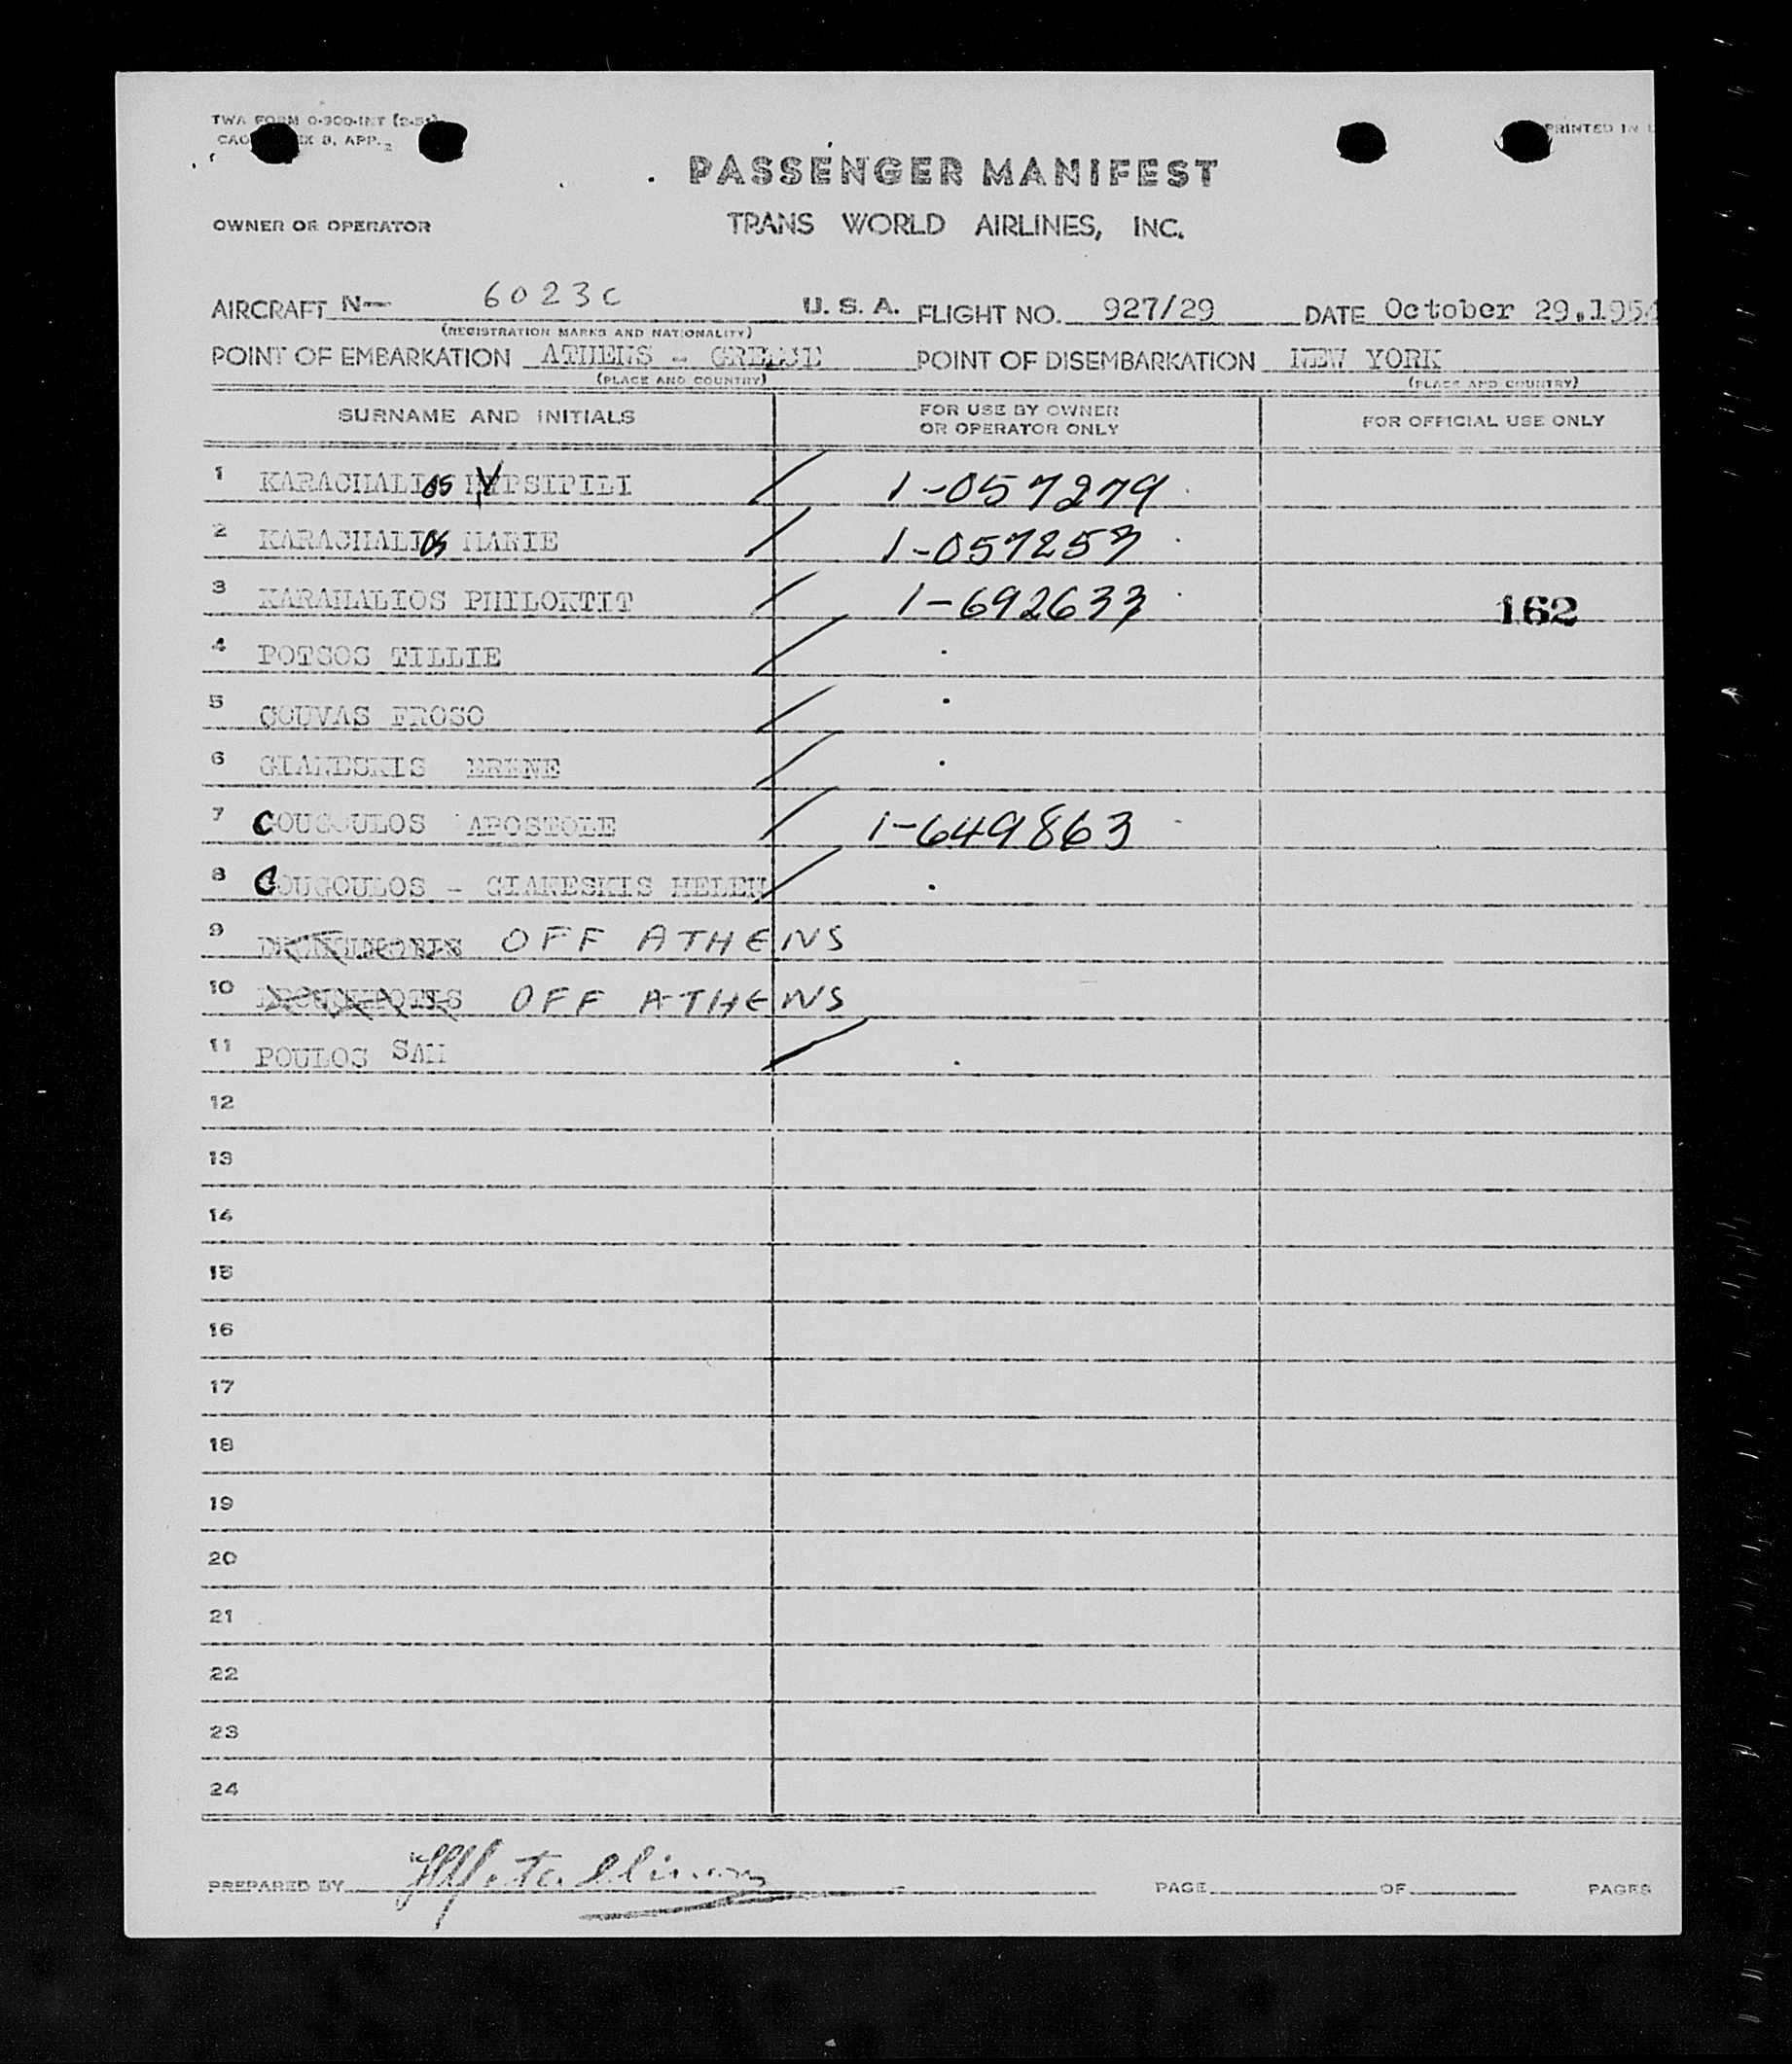 TWA FORM 0-900-INT (2-51)
CAO EX B, APP. 2
PRINTED IN U
PASSENGER MANIFEST
OWNER OR OPERATOR TRANS WORLD AIRLINES, INC.
AIRCRAFT N— 6023C U. S. A. FLIGHT NO. 927/29 DATE October 29,1954
(REGISTRATION MARKS AND NATIONALITY)
POINT OF EMBARKATION ATHENS - GREECE POINT OF DISEMBARKATION NEW YORK
(PLACE AND COUNTRY) (PLACE AND COUNTRY)
SURNAME AND INITIALS FOR USE BY OWNER OR OPERATOR ONLY FOR OFFICIAL USE ONLY
1 KARACHALIOS YPSIPILI / 1-057279
2 KARACHALIOS MARIE / 1-057253
3 KARAHALIOS PHILOKTIT / 1-692633 162
4 POTSOS TILLIE /
5 COUVAS FROSO /
6 GIANESKIS ERENE /
7 COUGOULOS APOSTOLE / 1-649863
8 COUGOULOS - GIANESKIS HELEN /
9 OFF ATHENS
10 OFF ATHENS
11 POULOS SAM /
12
13
14
15
16
17
18
19
20
21
22
23
24
PREPARED BY PAGE OF PAGES